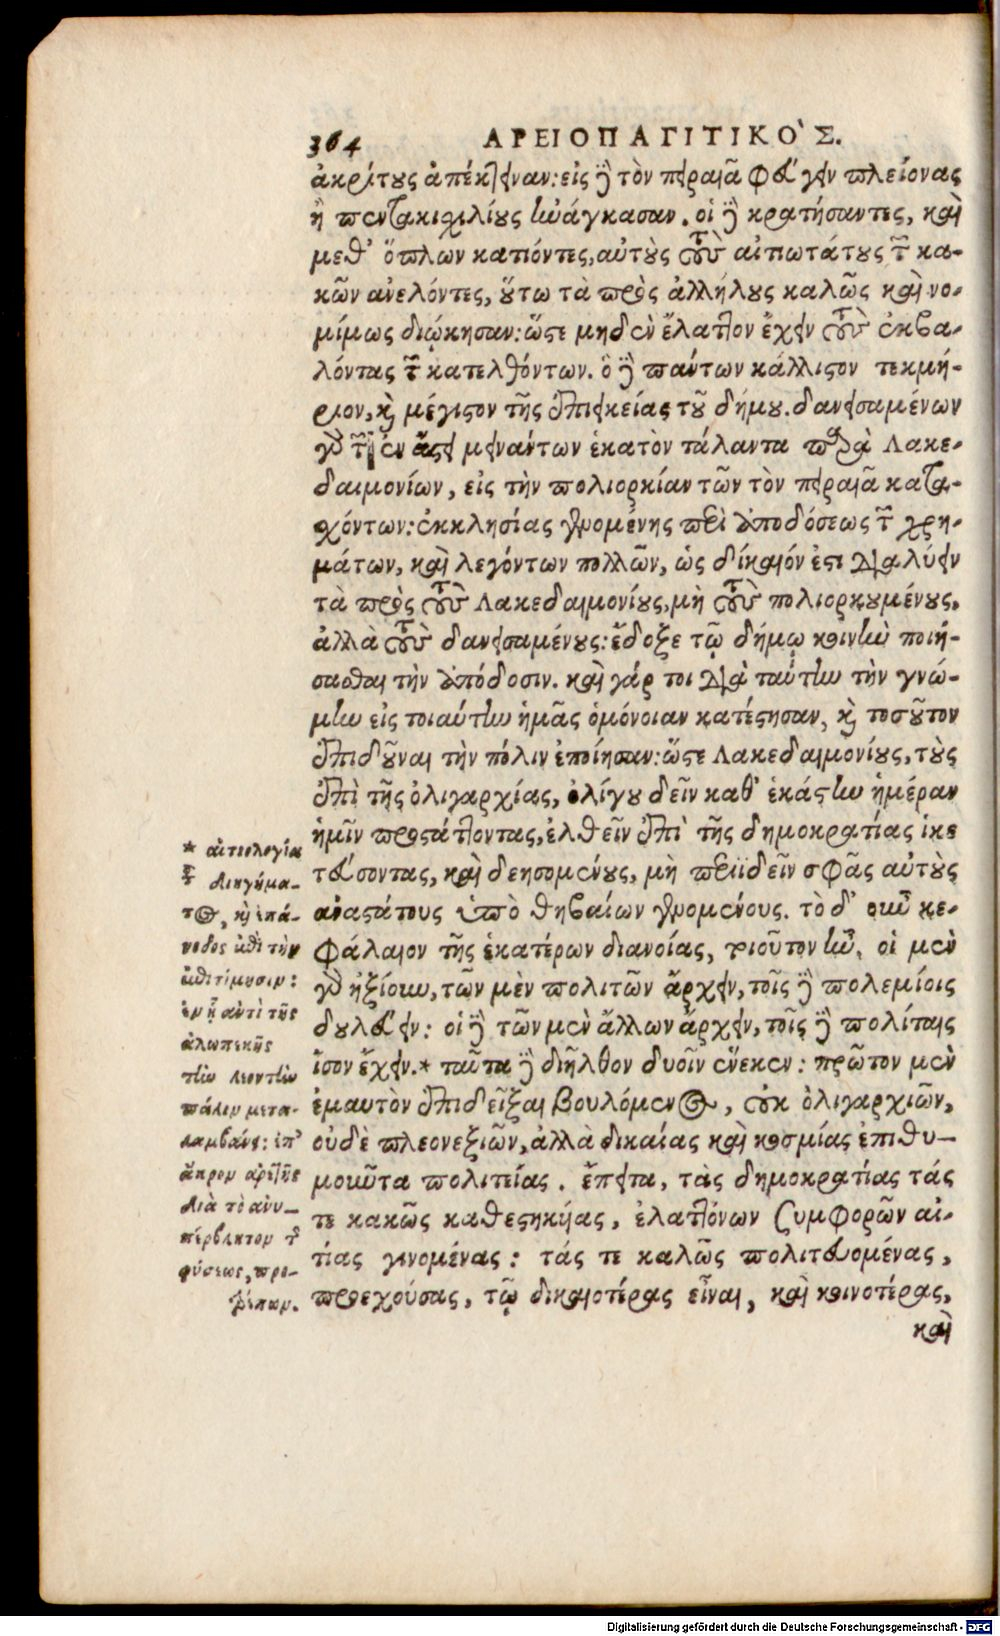 364 ΑΡΕΙΟΠΑΓΙΤΙΚΟ`Σ.
ἀκρίτους ἀπέκτειναν: εἰς δὲ τὸν πειραιᾶ φεύγειν πλείονας
ἢ πεντακισχιλίους ἠνάγκασαν. οἱ δὲ κρατήσαντες, καὶ
μεθ' ὅπλων κατιόντες, αὐτοὺς τοὺς αἰτιωτάτους τῶν κα-
κῶν ἀνελόντες, οὕτω τὰ πρὸς ἀλλήλους καλῶς καὶ νο-
μίμως διῴκησαν: ὥστε μηδὲν ἔλαττον ἔχειν τοὺς ἐκβα-
λόντας τῶν κατελθόντων. ὃ δὲ πάντων κάλλιστον τεκμή-
ριον, καὶ μέγιστον τῆς ἐπιεικείας τοῦ δήμου. δανεισαμένων
γὰρ τῶν ἐν ἄστει μεινάντων ἑκατὸν τάλαντα παρὰ Λακε-
δαιμονίων, εἰς τὴν πολιορκίαν τῶν τὸν πειραιᾶ κατα-
σχόντων: ἐκκλησίας γενομένης περὶ ἀποδόσεως τῶν χρη-
μάτων, καὶ λεγόντων πολλῶν, ὡς δίκαιόν ἐστι διαλύειν
τὰ πρὸς τοὺς Λακεδαιμονίους, μὴ τοὺς πολιορκουμένους,
ἀλλὰ τοὺς δανεισαμένους: ἔδοξε τῷ δήμῳ κοινὴν ποιή-
σασθαι τὴν ἀπόδοσιν. καὶ γάρ τοι διὰ ταύτην τὴν γνώ-
μην εἰς τοιαύτην ἡμᾶς ὁμόνοιαν κατέστησαν, καὶ τοσοῦτον
ἐπιδοῦναι τὴν πόλιν ἐποίησαν: ὥστε Λακεδαιμονίους, τοὺς
ἐπὶ τῆς ὀλιγαρχίας, ὀλίγου δεῖν καθ' ἑκάστην ἡμέραν
ἡμῖν προστάττοντας, ἐλθεῖν ἐπὶ τῆς δημοκρατίας ἱκε
τεύσοντας, καὶ δεησομένους, μὴ περιϊδεῖν σφᾶς αὐτοὺς
ἀναστάτους ὑπὸ θηβαίων γενομένους. τὸ δ' οὖν κε-
φάλαιον τῆς ἑκατέρων διανοίας, τοιοῦτον ἦν. οἱ μὲν
γὰρ ἠξίουν, τῶν μὲν πολιτῶν ἄρχειν, τοῖς δὲ πολεμίοις
δουλεύειν: οἱ δὲ τῶν μὲν ἄλλων ἄρχειν, τοῖς δὲ πολίταις
ἴσον ἔχειν.* ταῦτα δὲ διῆλθον δυοῖν ἕνεκεν: πρῶτον μὲν
ἐμαυτὸν ἐπιδεῖξαι βουλόμενος, οὐκ ὀλιγαρχιῶν,
οὐδὲ πλεονεξιῶν, ἀλλὰ δικαίας καὶ κοσμίας ἐπιθυ-
μοῦντα πολιτείας. ἔπειτα, τὰς δημοκρατίας τάς
τε κακῶς καθεστηκυίας, ἐλαττόνων συμφορῶν αἰ-
τίας γινομένας: τάς τε καλῶς πολιτευομένας,
προεχούσας, τῷ δικαιοτέρας εἶναι, καὶ κοινοτέρας,
καὶ
* αἰτιολογία
τοῦ διηγήμα-
τος, καὶ ἐπά-
νοδος ἐπὶ τὴν
ἐπιτίμησιν:
ἐν ᾗ ἀντὶ τῆς
ἀλωπεκῆς
τὴν λεοντῆν
πάλιν μετα-
λαμβάνει: ἐπ'
ἄκρον ἀρετῆς
διὰ τὸ ἀνυ-
πέρβλητον τῆς
φύσεως, προ-
τρέπων.
Digitalisierung gefördert durch die Deutsche Forschungsgemeinschaft - DFG